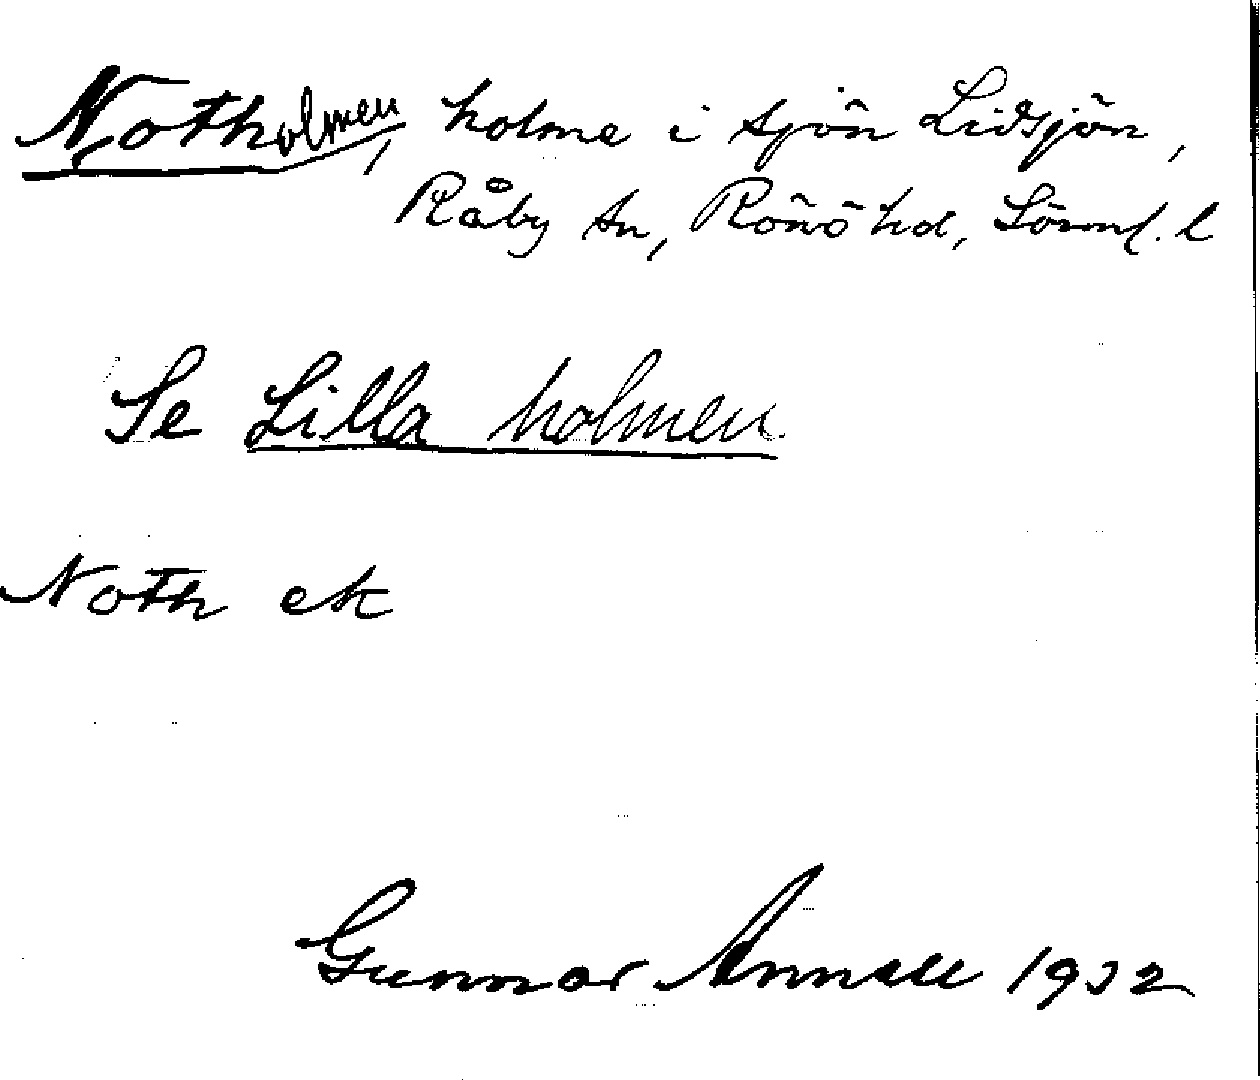 Notholmen, holme i sjön Lidsjön,
Råby sn, Rönö hd, Sörml. l
Se Lilla holmen
Noth ek
Gunnar 1932